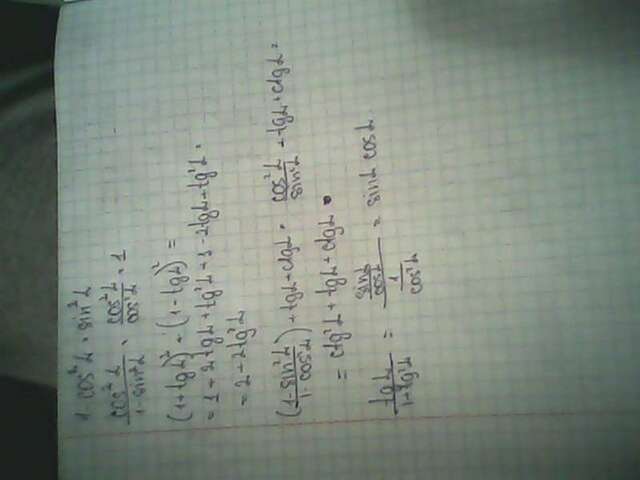 1-cos²α = sin²α
cos²α / 1-sin²α = cos²α / cos²α = 1
(1+tgα)² + (1-tgα)² =
= 1+2tgα+tg²α+1-2tgα+tg²α =
= 2+2tg²α
(1-sin²α / 1-cos²α) + tgα·ctgα = cos²α / sin²α + tgα·ctgα =
= ctg²α + tgα·ctgα
tgα / 1+tg²α = sinα / cosα / 1 / cos²α = sinα cosα